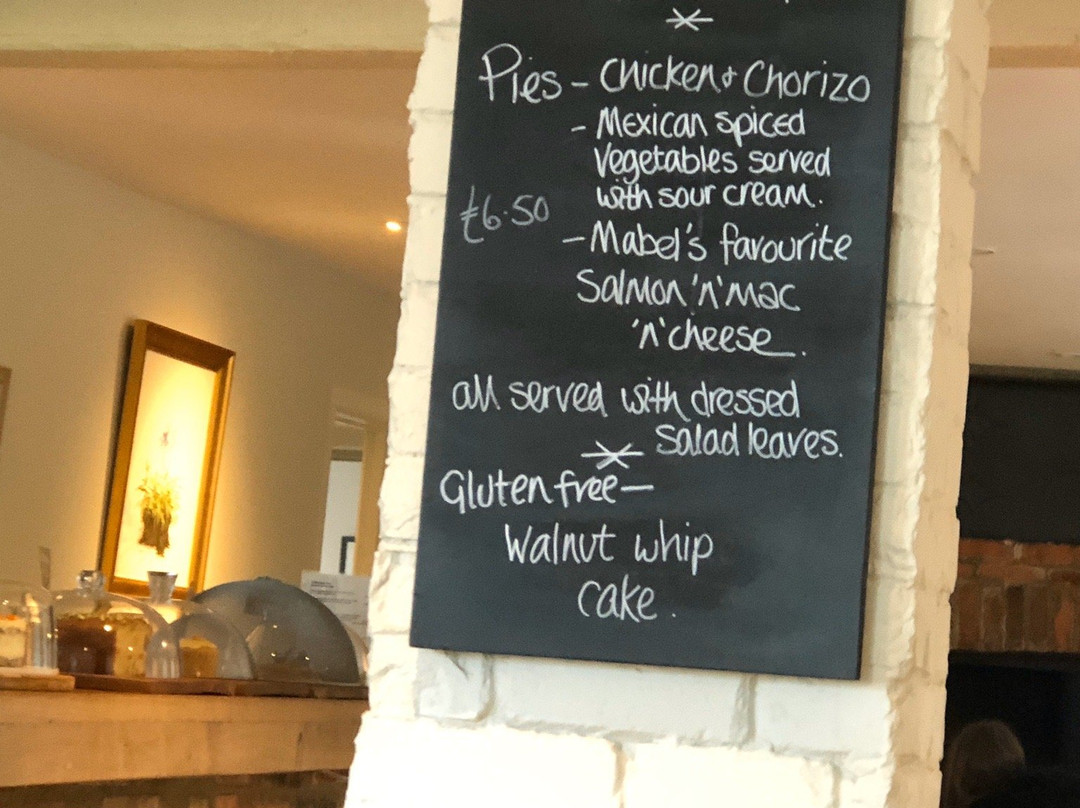 Pies - Chicken & Chorizo
- Mexican spiced
vegetables served
with sour cream.
£6.50
- Mabel's favourite
Salmon 'n' mac
'n' cheese.
all served with dressed
salad leaves.
Gluten free —
Walnut whip
cake.